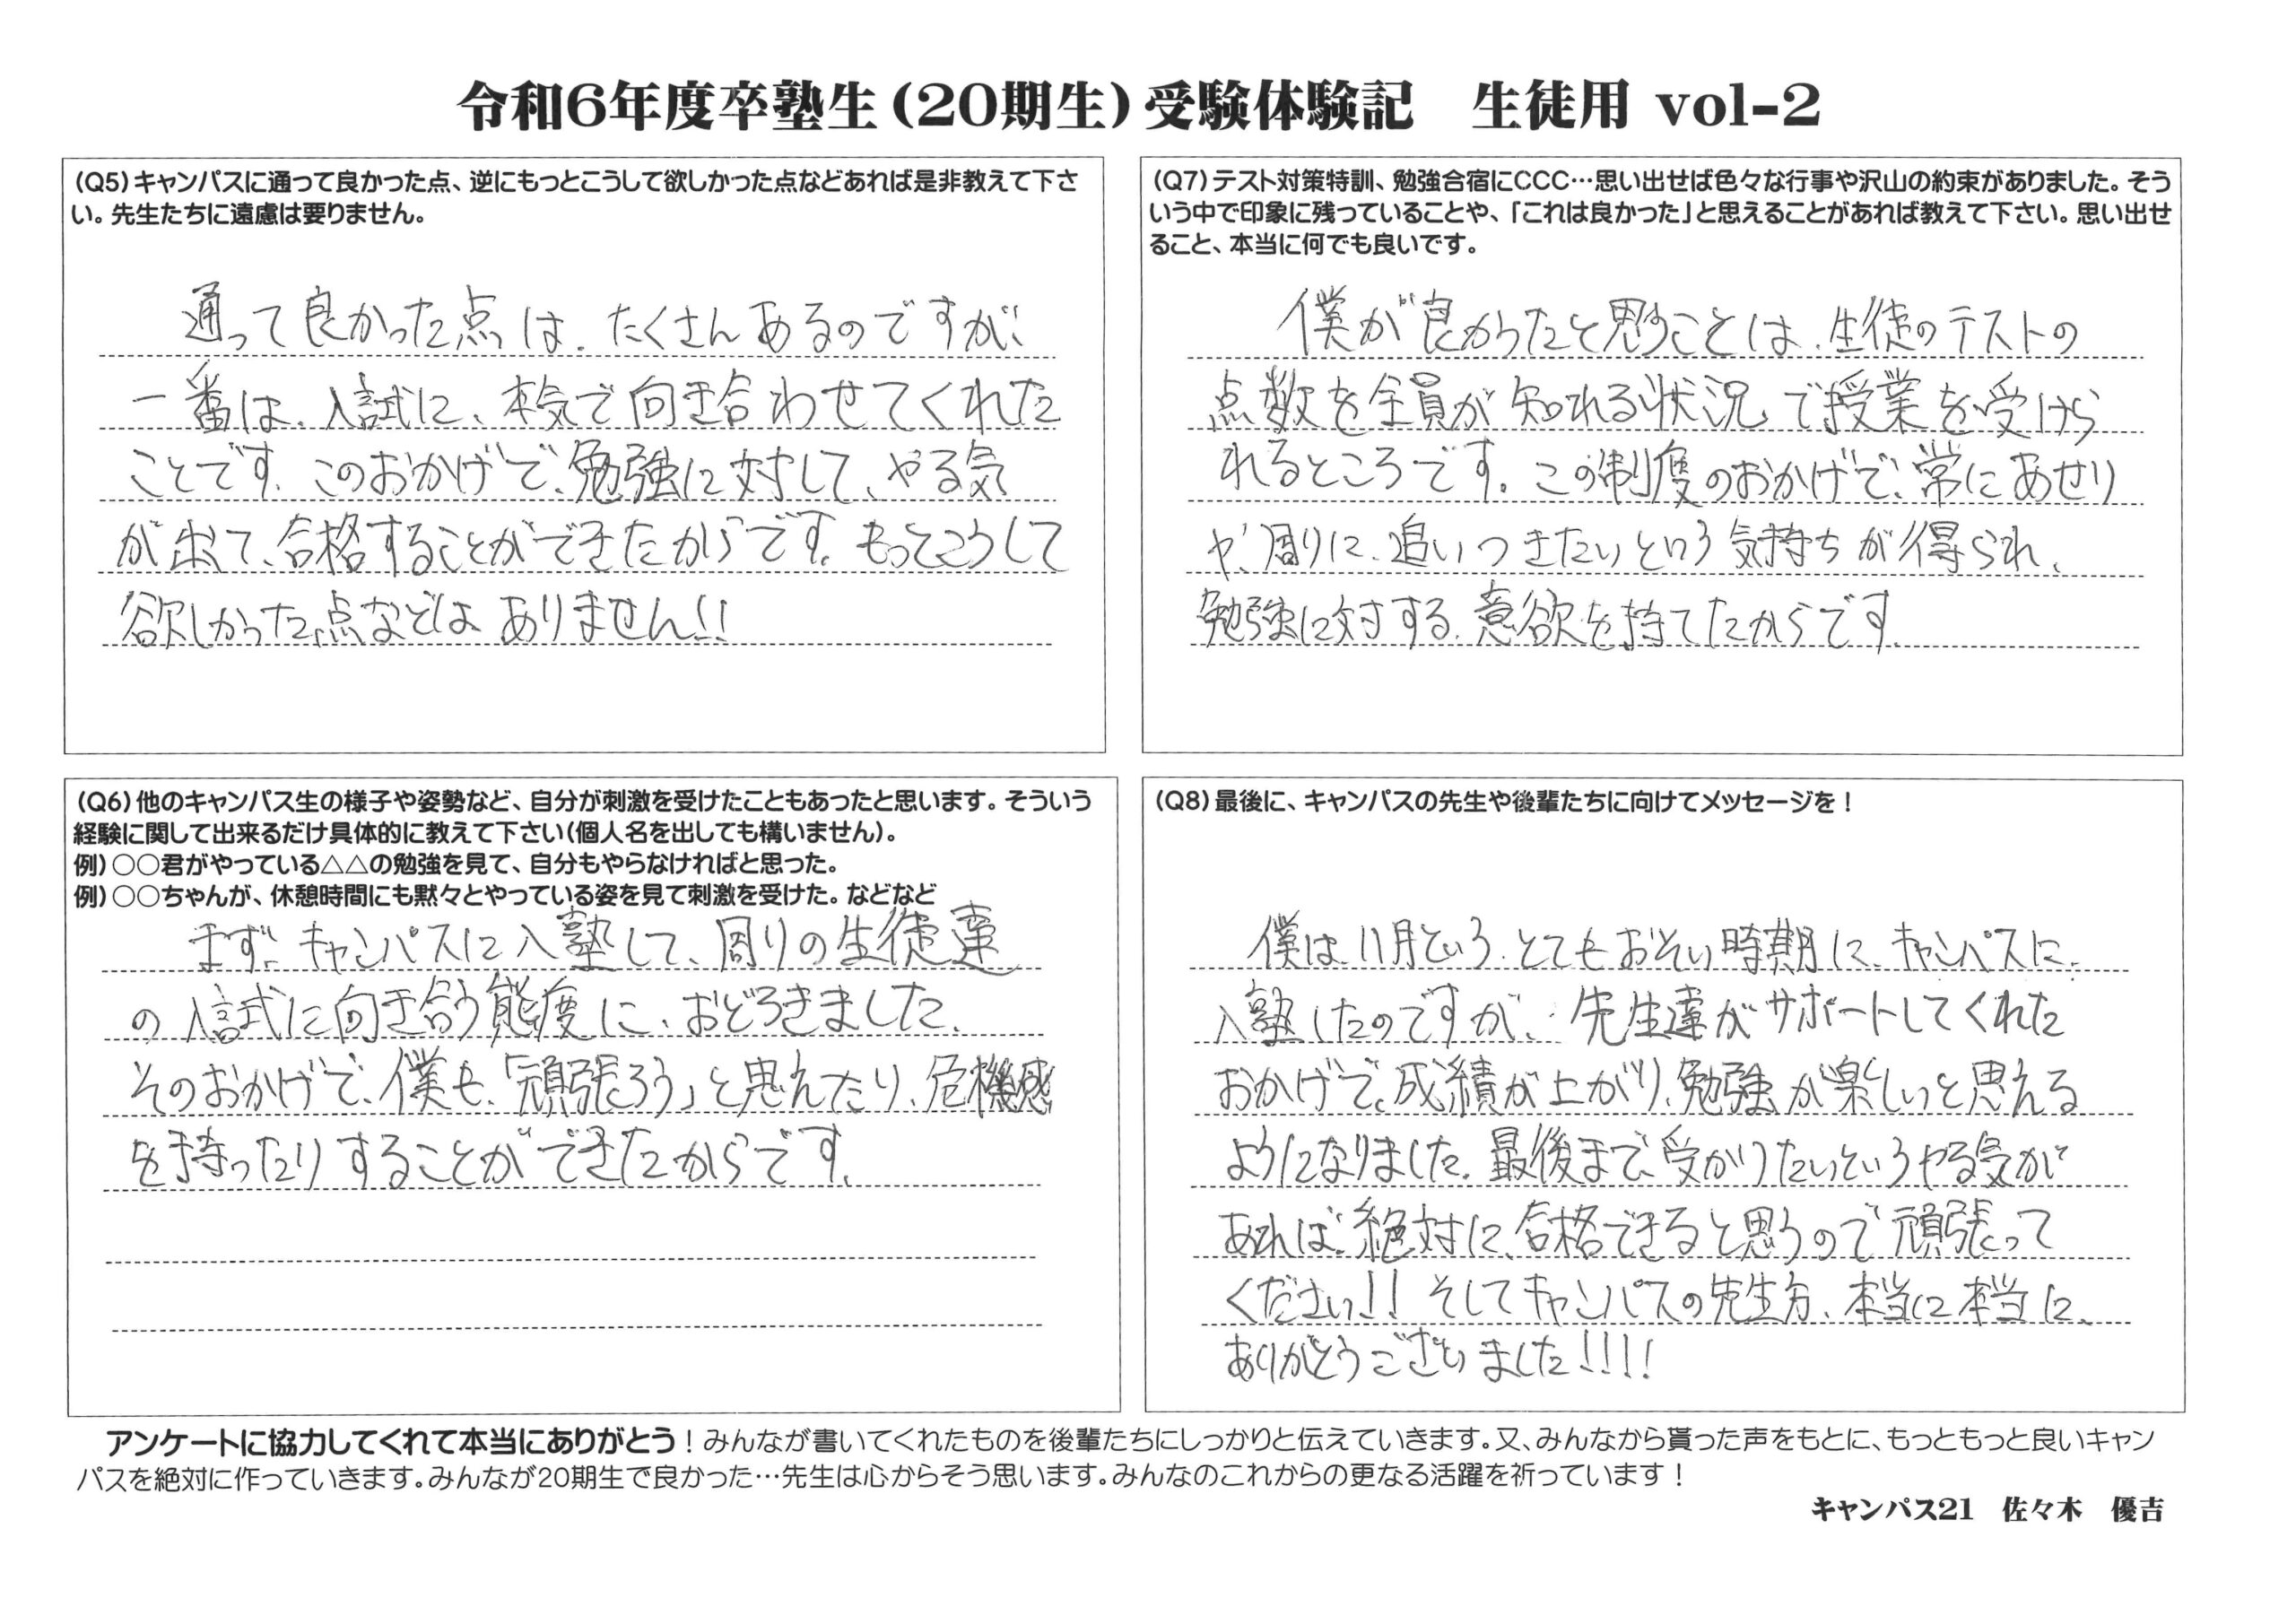 令和6年度卒塾生(20期生)受験体験記　生徒用 vol-2
(Q5)キャンパスに通って良かった点、逆にもっとこうして欲しかった点などあれば是非教えて下さ
い。先生たちに遠慮は要りません。
通って良かった点は、たくさんあるのですが、
一番は、入試に、本気で向き合わせてくれた
ことです。このおかげで、勉強に対して、やる気
が出て、合格することができたからです。もっとこうして
欲しかった点などは ありません!!
(Q6)他のキャンパス生の様子や姿勢など、自分が刺激を受けたこともあったと思います。そういう
経験に関して出来るだけ具体的に教えて下さい(個人名を出しても構いません)。
例)○○君がやっている△△の勉強を見て、自分もやらなければと思った。
例)○○ちゃんが、休憩時間にも黙々とやっている姿を見て刺激を受けた。などなど
まず、キャンパスに入塾して、周りの生徒達
の入試に向き合う態度に、おどろきました。
そのおかげで、僕も、「頑張ろう」と思えたり、危機感
を持ったりすることができたからです。
(Q7)テスト対策特訓、勉強合宿にCCC…思い出せば色々な行事や沢山の約束がありました。そう
いう中で印象に残っていることや、「これは良かった」と思えることがあれば教えて下さい。思い出せ
ること、本当に何でも良いです。
僕が良かったと思うことは、生徒のテストの
点数を全員が知れる状況で授業を受けら
れるところです。この制度のおかげで、常にあせり
や、周りに、追いつきたいという気持ちが得られ、
勉強に対する、意欲を持てたからです。
(Q8)最後に、キャンパスの先生や後輩たちに向けてメッセージを!
僕は、11月という、とてもおそい時期に、キャンパスに、
入塾したのですが、先生達がサポートしてくれた
おかげで、成績が上がり、勉強が楽しいと思える
ようになりました。最後まで、受かりたいというやる気が
あれば、絶対に、合格できると思うので頑張って
ください!! そしてキャンパスの先生方、本当に本当に、
ありがとうございました!!!!
アンケートに協力してくれて本当にありがとう!みんなが書いてくれたものを後輩たちにしっかりと伝えていきます。又、みんなから貰った声をもとに、もっともっと良いキャン
パスを絶対に作っていきます。みんなが20期生で良かった…先生は心からそう思います。みんなのこれからの更なる活躍を祈っています!
キャンパス21　佐々木　優吉